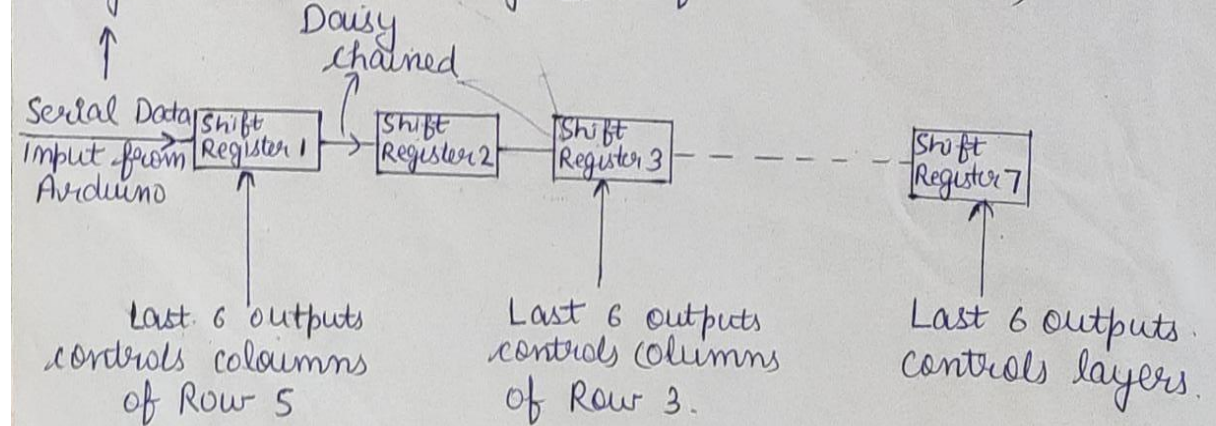 Daisy
chained
Serial Data
Input from
Arduino
Shift
Register 1
Shift
Register 2
Shift
Register 3
Shift
Register 7
Last 6 outputs
controls coloumns
of Row 5
Last 6 outputs
controls columns
of Row 3.
Last 6 outputs.
controls layers.